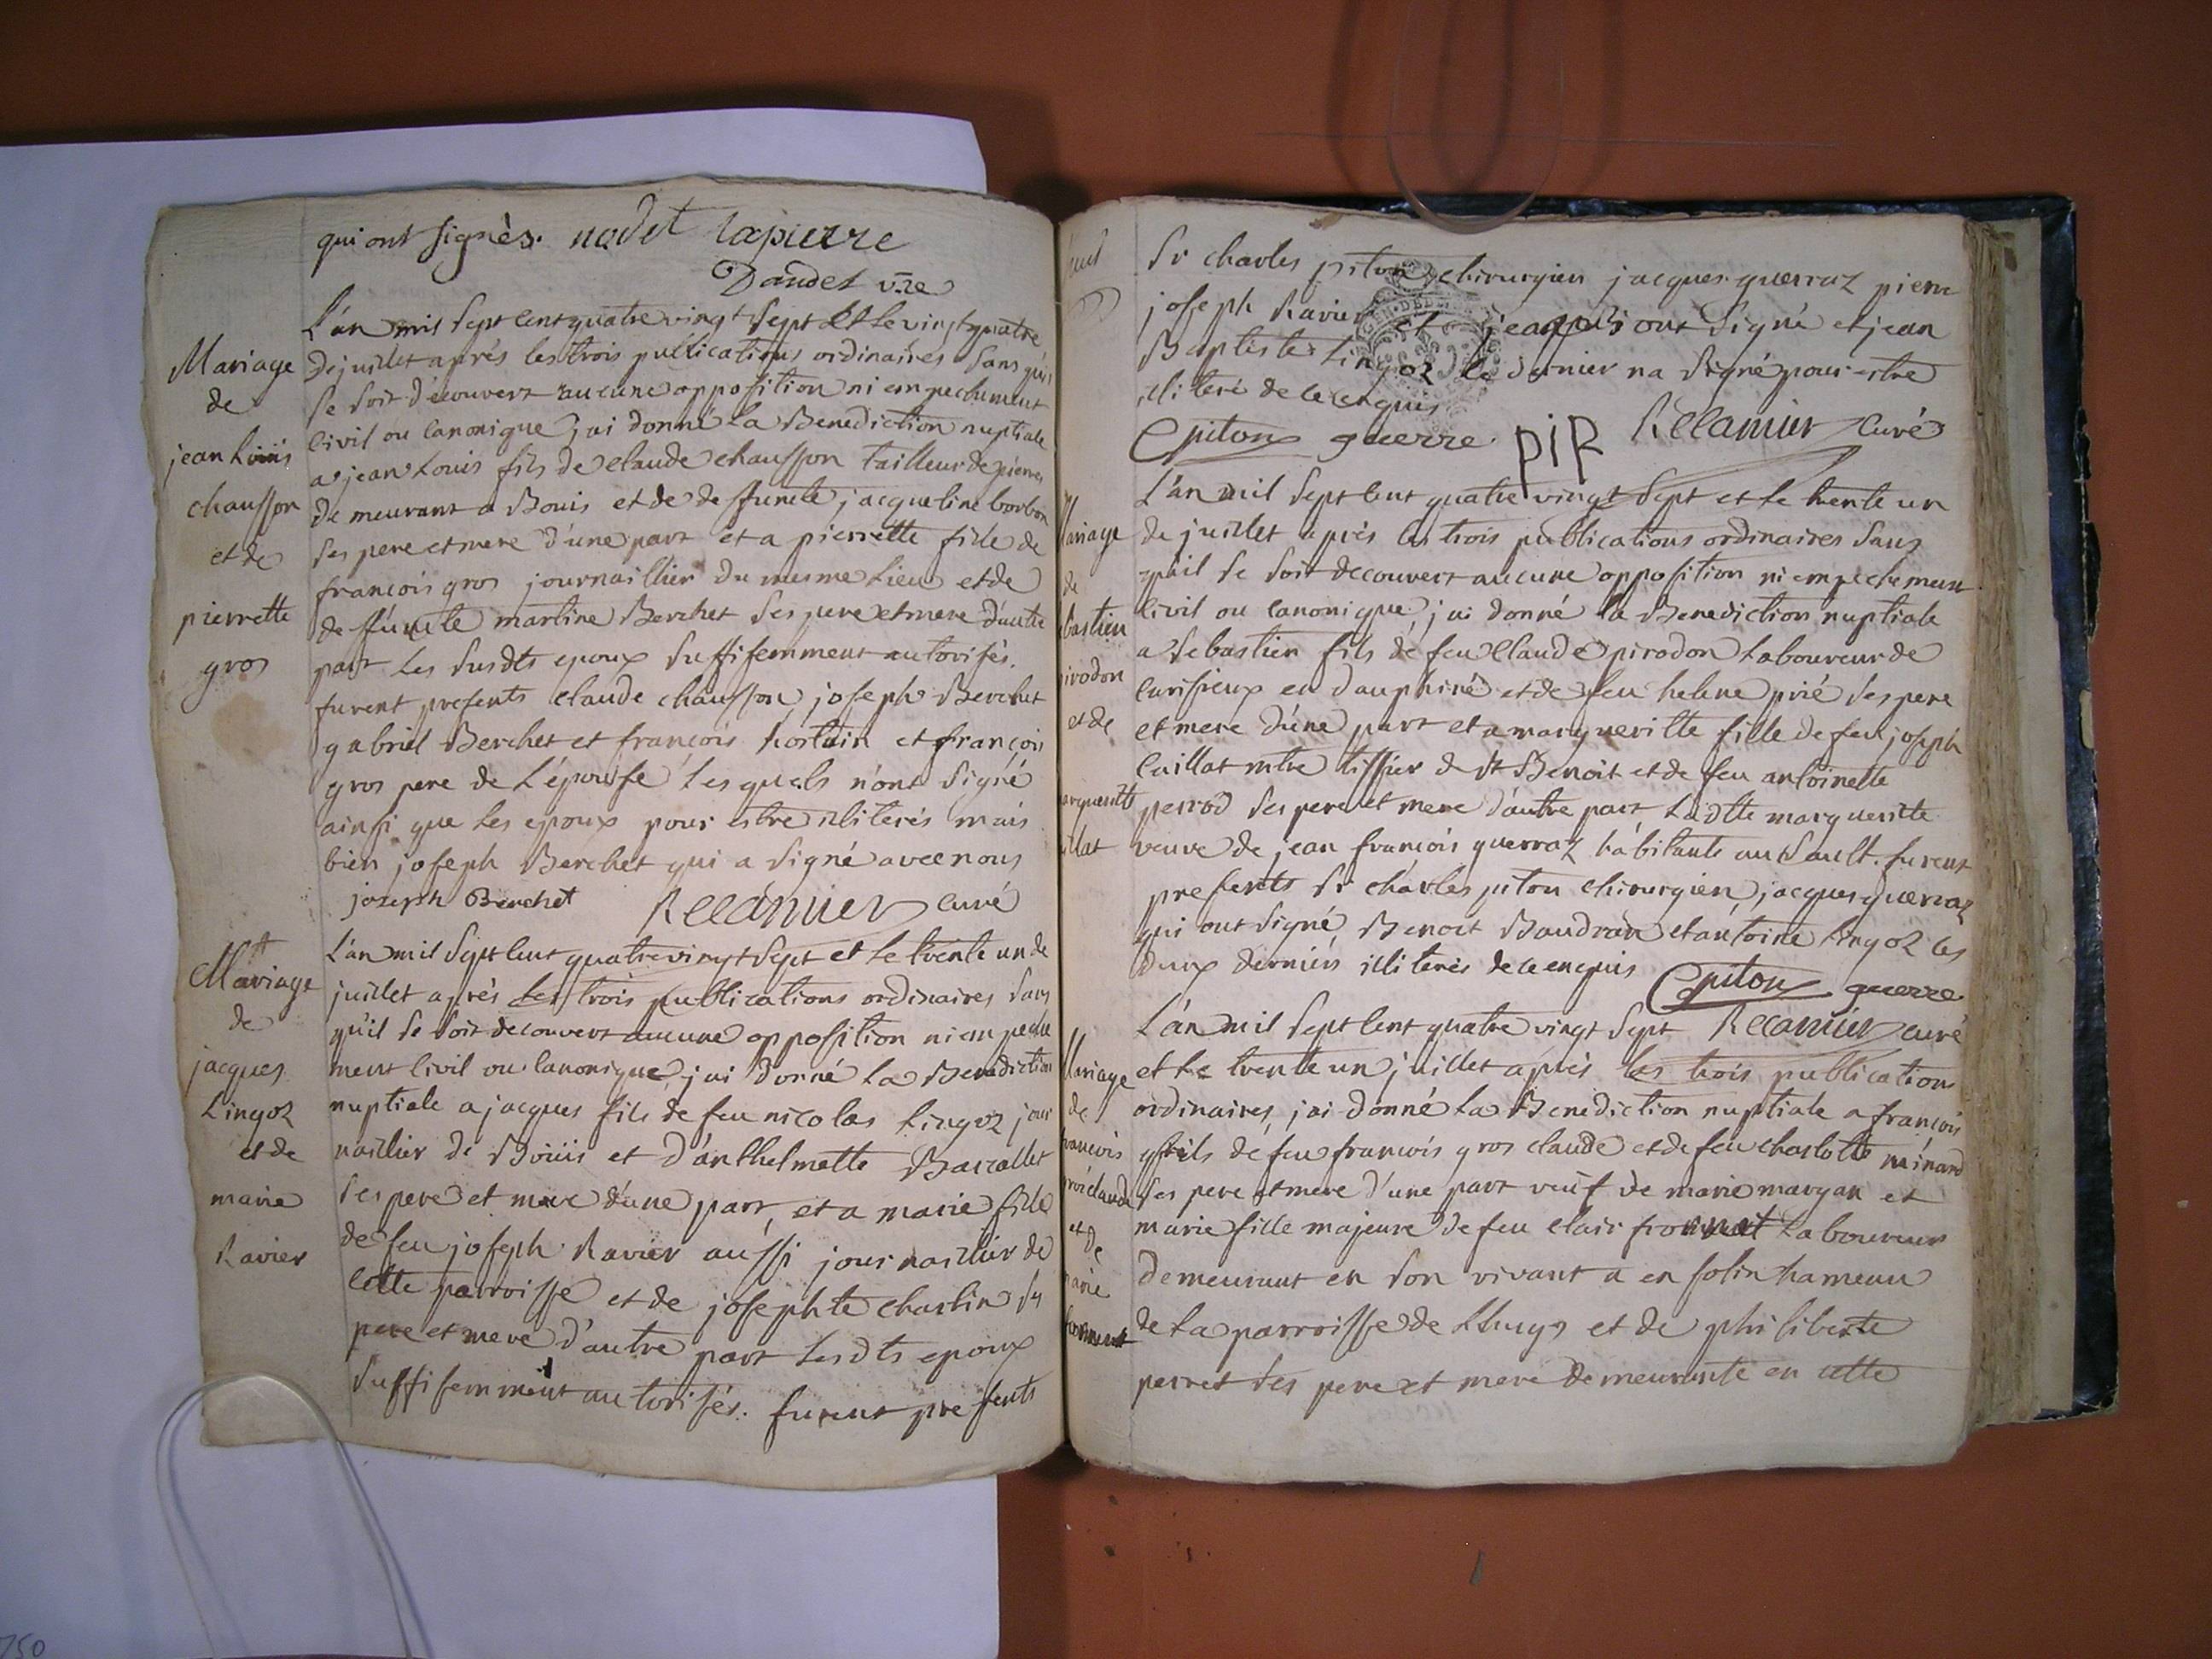 qui ont signés. nodet lapierre
Dandet v.re
L'an mil sept cent quatre vingt sept et le vingt quatre
Mariage
de
jean Louis
chausson
et de
pierrette
gros
de juillet aprés les trois publications ordinaires sans qu'il
se soit découvert aucune opposition ni empechement
civil ou canonique j'ai donné la Benediction nuptiale
a jean Louis fils de claude chausson tailleur de pierres
demeurant a Bouis et de deffuncte jacqueline borbon
ses pere et mere d'une part et a pierrette fille de
françois gros journaillier du mesme Lieu et de
deffuncte martine Berchet ses pere et mere d'autre
part Les susdts epoux suffisemment autorisés.
furent presents claude chausson, joseph Berchet
gabriel Berchet et françois et françois
gros pere de L'épouse Les quels n'ont signé
ainsi que Les epoux pour estre illiterés mais
bien joseph Berchet qui a signé avec nous
joseph Berchet Récamier curé
Mariage
de
jacques
Lingoz
et de
marie
Ravier
L'an mil sept cent quatre vingt sept et le trente un de
juillet aprés les trois publications ordinaires sans
qu'il se soit decouvert aucune opposition ni empeche
ment civil ou canonique, j'ai donné La Benediction
nuptiale a jacques fils de feu nicolas Lingoz jour
naillier de Boüis et d'anthelmette
ses pere et mere d'une part, et a marie fille
de feu joseph Ravier aussi journaillier de
cette parroisse et de josephte charlin ses
pere et mere d'autre part Lesdts epoux
suffisemment autorisés. furent presents
Sr charles piton chirurgien jacques guerraz pierre
joseph Ravier et qui ont signé et jean
Baptiste Lingoz le dernier na signé pour estre
illiteré de ce enquis
C piton guerre PIR Récamier curé
Mariage
de
bastien
irodon
et de
arguerite
illat
L'an mil sept cent quatre vingt sept et le trente un
de juillet aprés les trois publications ordinaires sans
qu'il se soit decouvert aucune opposition ni empechement
civil ou canonique, j'ai donné la Benediction nuptiale
a sebastien fils de feu claude pirodon Laboureur de
curisieux en dauphiné et de feu helene prié ses pere
et mere d'une part et a marguerite fille de feu joseph
cuillat mtre tissier de st Benoit et de feu antoinette
perrod ses pere et mere d'autre part Ladtte marguerite
veuve de jean françois guerraz habitante au Sault. furent
presents Sr charles piton chirurgien, jacques guerraz
qui ont signé, Benoit Baudran et antoine Lingoz les
deux derniers illiterés de ce enquis C piton guerre
L'an mil sept cent quatre vingt sept Récamier curé
Mariage
de
rancois
et de
arie
et le trente un juillet aprés les trois publications
ordinaires, j'ai donné La Benediction nuptiale a françois
fils de feu françois gros claude et de feu charlotte minard
ses pere et mere d'une part veuf de marie margan et
marie fille majeure de feu clair froment Laboureur
demeurant en son vivant a en solin hameau
de La parroisse de Lhuys et de philiberte
perret ses pere et mere demeurante en cette
750